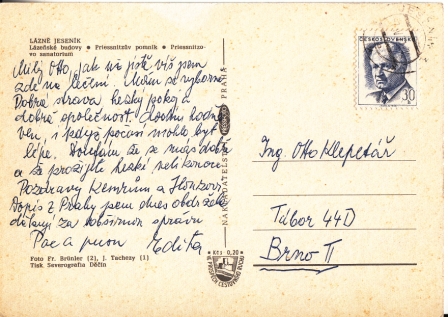 LÁZNĚ JESENÍK
Lázeňské budovy ● Priessnitzův pomník ● Priessnitzo-
vo sanatorium
Milý Otto, jak ještě víš jsem
zde na léčení. Mám se výborně.
Dobrá strava hezký pokoj a
dobrá společnost. Dostu hodně
ven, i když počasí mohlo být
lépe. Doufám že se máš dobře
a že prožijete hezké velikonoce.
Pozdravy
Dopis z Prahy jsem dnes obdržela
děkuji za zprávu
Pac a pusu Edita
Foto Fr. Brünler (2), J. Tachezy (1)
Tisk. Severografia Děčín
NAKLADATELSTVÍ PRAHA
Kčs 0,20
ČESKOSLOVENSKO
30
Ing. Otto Klepetář
Tábor 44D
Brno II